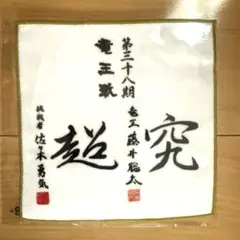 第三十八期
竜王戦
竜王 藤井聡太
究
超
挑戦者 佐々木勇気